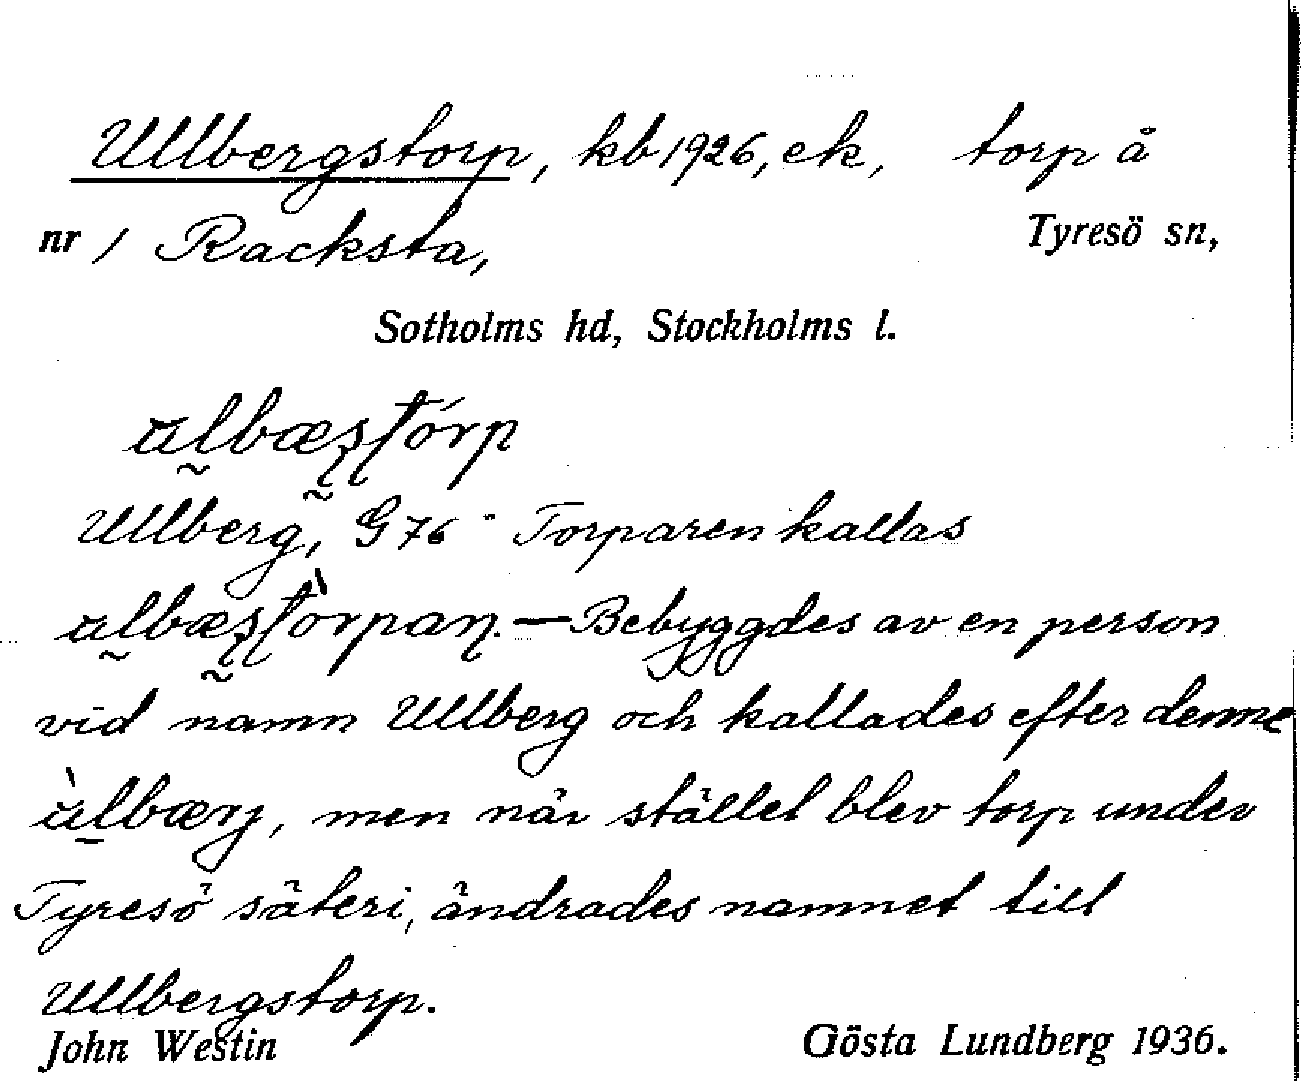 Ullbergstorp, kb 1926, ek, torp å
nr 1 Racksta, Tyresö sn,
Sotholms hd, Stockholms l.
Ullberg, G 76 - Torparen kallas
— Bebyggdes av en person
vid namn Ullberg och kallades efter denne
men när stället blev torp under
Tyresö säteri, ändrades namnet till
Ullbergstorp.
John Westin Gösta Lundberg 1936.